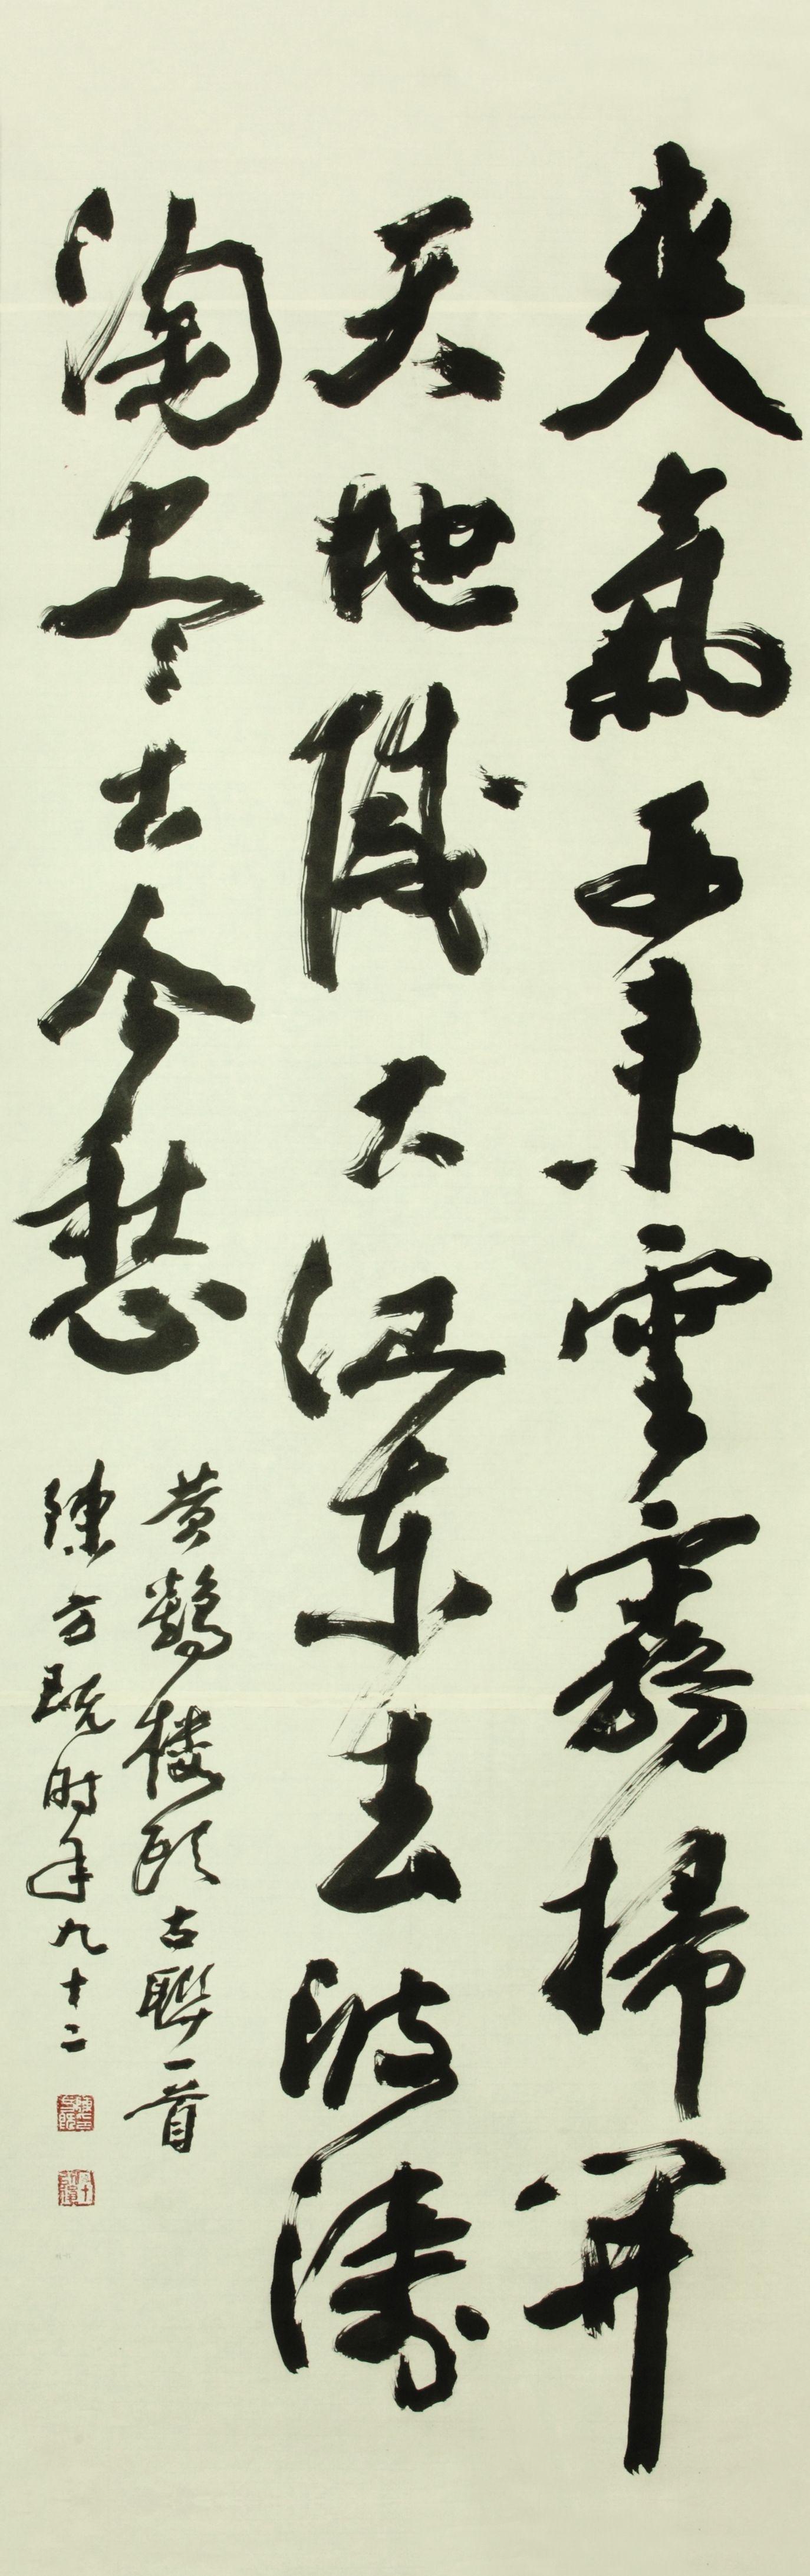 爽氣西來雲霧掃開
天地憾大江東去波濤
淘尽古今愁
黄鶴楼頭古聯一首
陳方既时年九十二